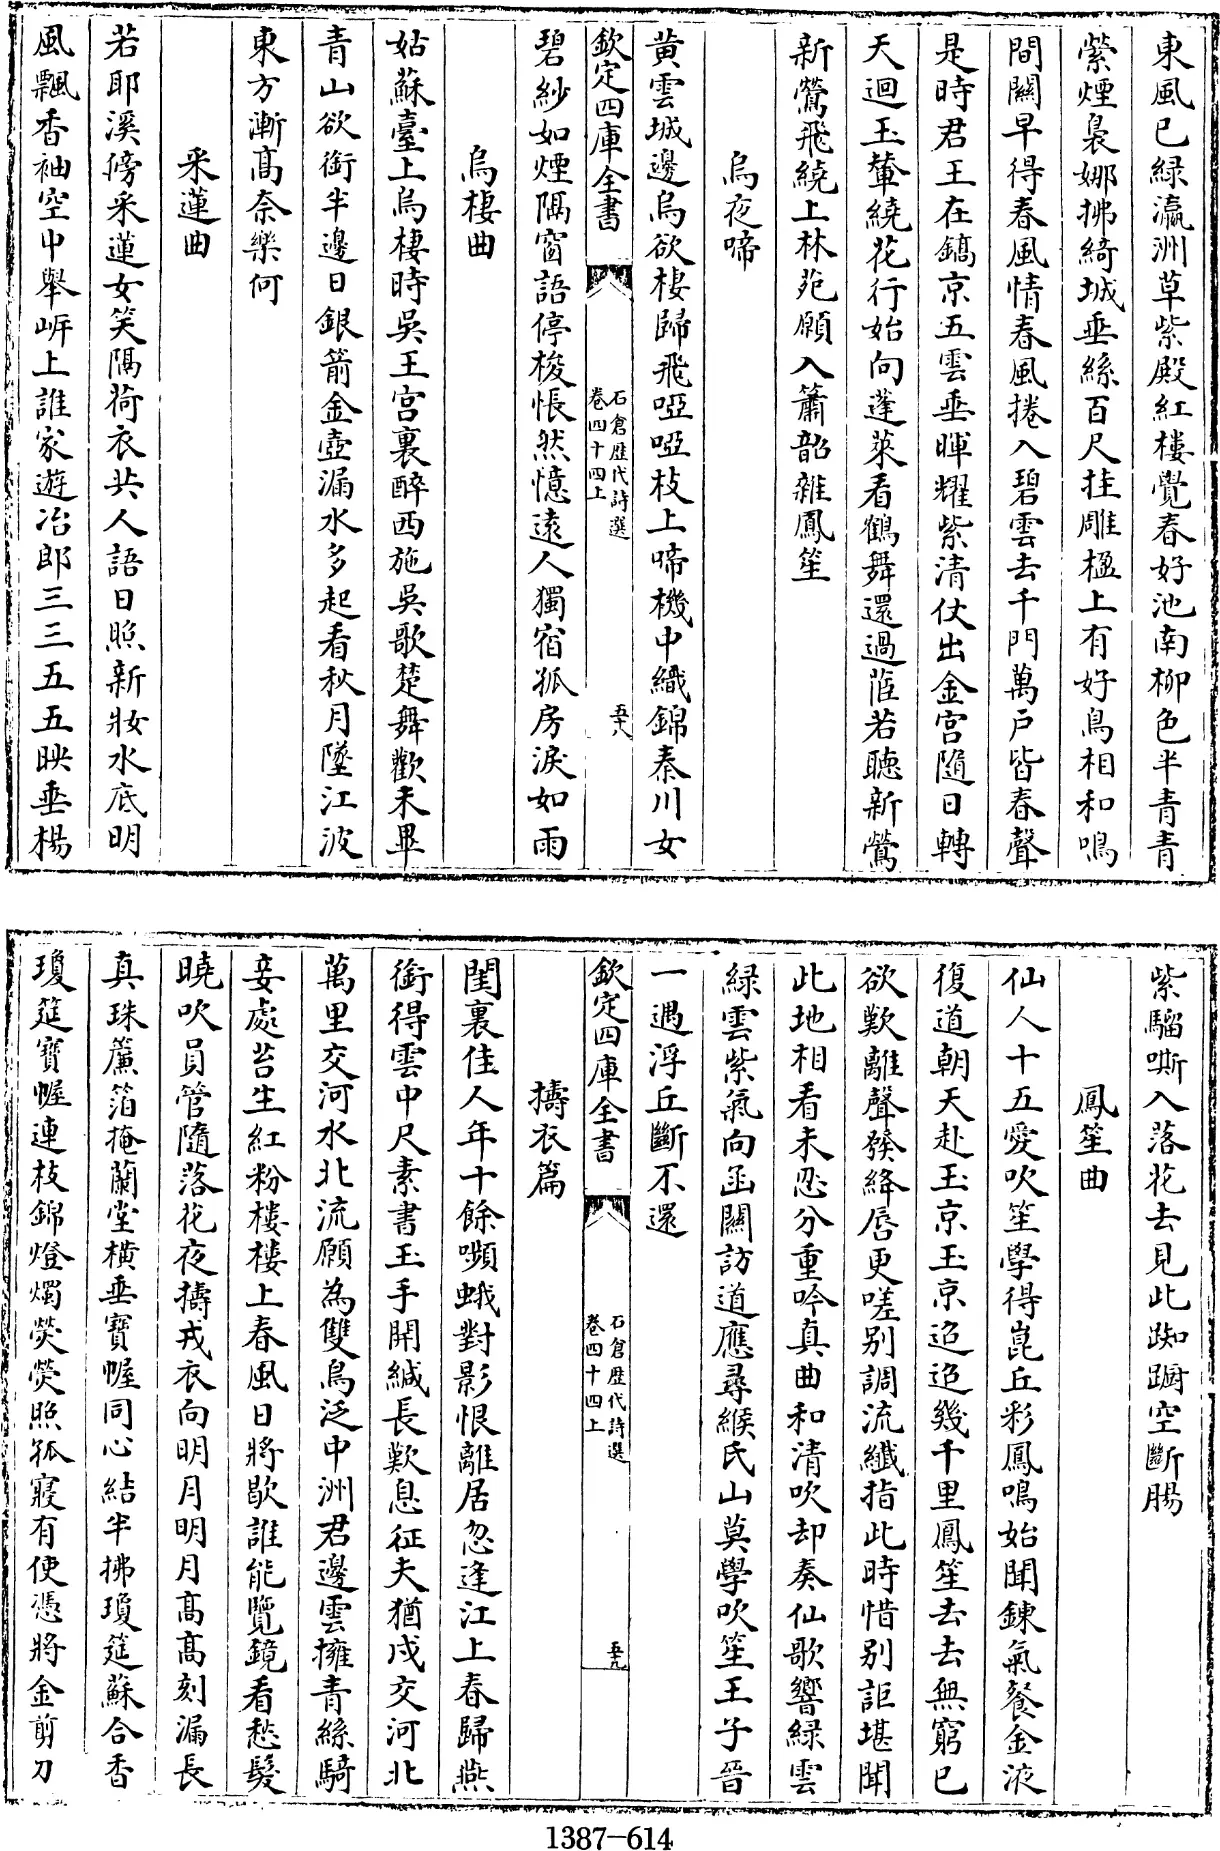 東風已緑瀛洲草紫殿紅樓覺春好池南柳色半青青
縈煙裊娜拂綺城垂絲百尺挂雕楹上有好鳥相和鳴
間關早得春風情春風捲入碧雲去千門萬户皆春聲
是時君王在鎬京五雲垂暉耀紫清仗出金宫隨日轉
天迴玉輦繞花行始向蓬萊看鶴舞還過茝若聽新鶯
新鶯飛繞上林苑願入簫韶雜鳳笙
烏夜啼
黄雲城邊烏欲棲歸飛啞啞枝上啼機中織錦秦川女
欽定四庫全書
石倉歴代詩選
卷四十四上
五十八
碧紗如煙隔窗語停梭悵然憶遠人獨宿孤房淚如雨
烏棲曲
姑蘇臺上烏棲時吳王宫裏醉西施吳歌楚舞歡未畢
青山欲銜半邊日銀箭金壺漏水多起看秋月墜江波
東方漸髙奈樂何
采蓮曲
若耶溪傍采蓮女笑隔荷衣共人語日照新妝水底明
風飄香袖空中舉㟁上誰家遊冶郎三三五五映垂楊
紫騮嘶入落花去見此踟蹰空斷腸
鳳笙曲
仙人十五愛吹笙學得崑丘彩鳳鳴始聞鍊氣餐金液
復道朝天赴玉京玉京迢迢幾千里鳳笙去去無窮已
欲歎離聲發絳唇更嗟别調流纖指此時惜别詎堪聞
此地相看未忍分重吟真曲和清吹却奏仙歌響緑雲
緑雲紫氣向函關訪道應尋緱氏山莫學吹笙王子晉
一遇浮丘斷不還
欽定四庫全書
石倉歴代詩選
卷四十四上
五十九
擣衣篇
閨裏佳人年十餘嚬蛾對影恨離居忽逢江上春歸燕
銜得雲中尺素書玉手開緘長歎息征夫猶戍交河北
萬里交河水北流願為雙鳥泛中洲君邊雲擁青絲騎
妾處苔生紅粉樓樓上春風日將歇誰能覽鏡看愁髮
曉吹員管隨落花夜擣戎衣向明月明月髙髙刻漏長
真珠簾箔掩蘭堂横垂寶幄同心結半拂瓊筵蘇合香
瓊筵寶幄連枝錦燈燭熒熒照孤寢有使憑將金剪刀
1387-614